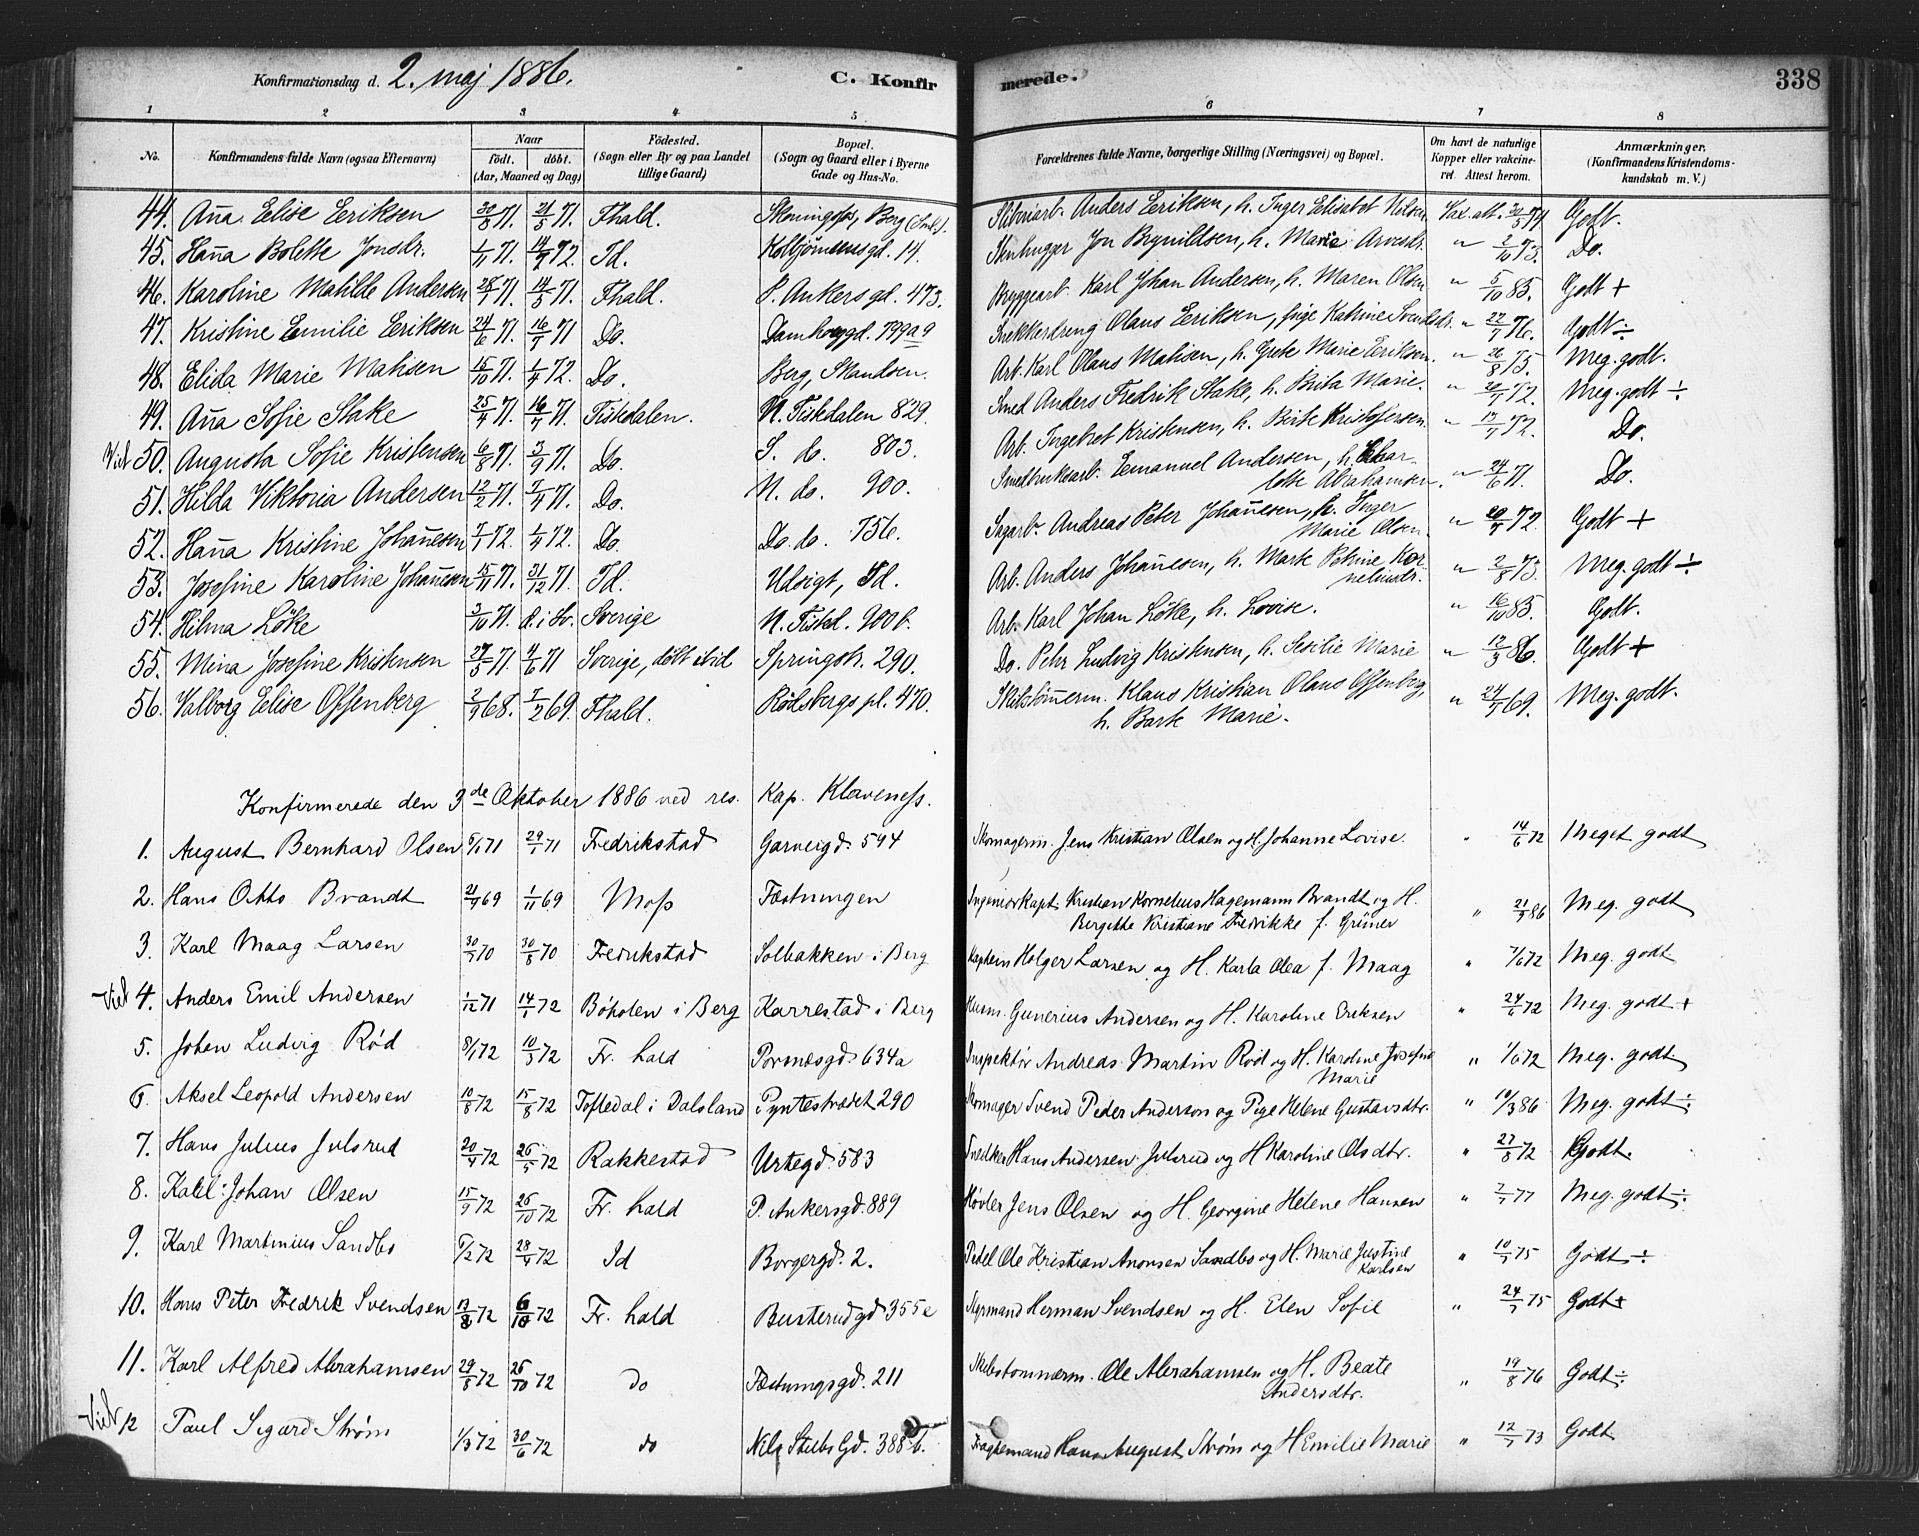 Konfirmationsdag d. 2. maj 1886. C. Konfir merede. 338
1 2 3 4 5 6 7 8
No. Konfirmandens fulde Navn (ogsaa Efternavn) Naar födt. döbt. (Aar, Maaned og Dag) Födested. (Sogn eller By og paa Landet tillige Gaard) Bopæl. (Sogn og Gaard eller i Byerne Gade og Hus-No. Forældrenes fulde Navne, borgerlige Stilling (Næringsvei) og Bopæl. Om havt de naturlige Kopper eller vakcineret. Attest herom. Anmærkninger. (Konfirmandens Kristendomskundskab m. V.)
44. Aña Elise Eriksen 30/3 71. 21/5 71. Fhald. Berg (Sml.). Anders Eriksen, h. Inger Elisabet Nilsen Vax. att. 71 Godt.
45. Haña Bolette Jonsdr. 1/11 71. 14/4 72. Id. Kolbjørnsensgd. 14. Stenhugger Jon Brynildsen, h. Marie Arvesdr. " 2/10 73. Do.
46. Karoline Matilde Andersen 28/1 71. 14/5 71. Fhald. P. Ankers gd. 473. Bryggearb. Karl Johan Andersen, h. Maren Olsen " 5/10 85. Godt +
47. Kristine Emilie Eriksen 24/6 71. 16/7 71 Do. Damhavgd. 799 a 9 Snekkerdreng Olaus Eriksen, pige Katrine Svendsdr. " 22/7 76. Godt ÷
48. Elida Marie Mathsen 15/10 71. 1/4 72. Do. Berg, Strandsen. Arb. Karl Olaus Mathisen, h. Grete Marie Eriksen. " 26/8 75. Meg. godt.
49. Aña Sofie Stake 25/4 71. 16/7 71. Tistedalen. N. Tistedalen 829. Smed Anders Fredrik Stake, h. Brita Marie. " 72. Meg. godt ÷
Viet 50. Augusta Sofie Kristensen 6/8 71. 3/9 71. Do. S. do. 803. Arb. Ingebret Kristensen, h. Berte Kristoffersen. " 13/7 72. Do.
51. Hilda Viktoria Andersen 12/2 71. 7/4 71. Do. N. do. 900. Emanuel Andersen, h. Charlotte Abrahamsen. " 24/6 71. Do.
52. Haña Kristine Johañesen 7/1 72. 1/4 72. Do. Do. do. 756. Sagarb. Andreas Peter Johañesen, h. Inger Marie Olsen. " 72. Godt +
53. Josefine Karoline Johañesen 15/11 71. 31/12 71. Id. Udsigt, Id. Arb. Anders Johañesen, h. Marte Petrine Korneliusdr. " 2/8 73. Meg. godt ÷
54. Hilma Löke 3/10 71. d. i Sv. Sverige N. Tistd. 900 b. Arb. Karl Johan Löke, h. Lovise. " 16/10 85. Godt.
55. Mina Josefine Kristensen 27/5 71. 4/6 71 Sverige, döbt ibid Springstr. 290. Do. Petr Ludvig Kristensen, h. Sesilie Marie " 12/3 86. Godt +
56. Valborg Elise Offenberg 2/9 68. 7/2 69. Fhald. Rödsbergs pl. 470. Skibstömerm. Klaus Kristian Olaus Offenberg, h. Berte Marie. " 24/7 69. Meg. godt.
Konfirmerede den 3de Oktober 1886 ved res. Kap. Klaveness.
1. August Bernhard Olsen 5/1 71 29/1 71 Fredrikstad Garverigd. 594 Skomagerm. Jens Kristian Olsen og H. Johanne Lovise. " 14/6 72 Meget godt
2. Hans Otto Brandt 21/9 69 1/11 69 Moss Fæstningen Ingeniørkapt. Kristian Kornelius Hagemann Brandt og H. Bergitte Kristiane Fredrikke f. Grüner " 21/9 86 Meg. godt
3. Karl Maag Larsen 30/7 70 30/8 70 Fredrikstad Solbakken i Berg Kaptein Holger Larsen og H. Karla Olea f. Maag " 7/6 72 Meg. godt
Viet 4. Anders Emil Andersen 1/12 71 14/1 72 Böholen i Berg Karrestad i Berg Husm. Gunerius Andersen og H. Karoline Eriksen " 24/6 72 Meg. godt +
5. Johan Ludvig Röd 8/1 72 10/3 72 Fr. hald Pormesgd. 634a Inspektör Andreas Martin Röd og H. Karoline Josefine Marie " 1/6 72 Meg. godt
6. Aksel Leopold Andersen 10/8 72 15/8 72 Töftedal i Dalsland Pyntestrædet 290 Skomager Svend Peder Anderson og Pige Helene Gustavsdtr. " 10/3 86 Meg. godt ÷
7. Hans Julius Julsrud 20/4 72 26/5 72 Rakkestad Urtegd. 583 Snedker Hans Andersen Julsrud og H Karoline Olsdtr. " 27/8 72 Godt.
8. Johan Olsen 15/9 72 26/10 72 Fr. hald P. Ankersgd. 889 Hövler Jens Olsen og H. Georgine Helene Hansen " 2/7 77 Meg. godt ÷
9. Karl Martinius Sandbo 5/2 72 28/4 72 Id Borgergd. 2. Pedel Ole Kristian Aronsen Sandbo og H. Marie Justine Karlsen " 10/7 75 Godt ÷
10. Hans Peter Fredrik Svendsen 13/8 72 6/10 72 Fr. hald Busterudgd 355e Styrmand Herman Svendsen og H. Elen Sofie " 24/7 75 Godt +
11. Karl Alfred Abrahamsen 29/8 72 26/10 72 do Fæstningsgd. 211 Skibstømmerm. Ole Abrahamsen og H. Beate Andersdtr. " 19/8 76 Godt ÷
Viet 12 Paul Sigard Strøm 1/3 72 30/6 72 do Nils Stubs Gd. 388 b. Fragtemand Hans August Strøm og H Emilie Marie " 12/7 73 Godt